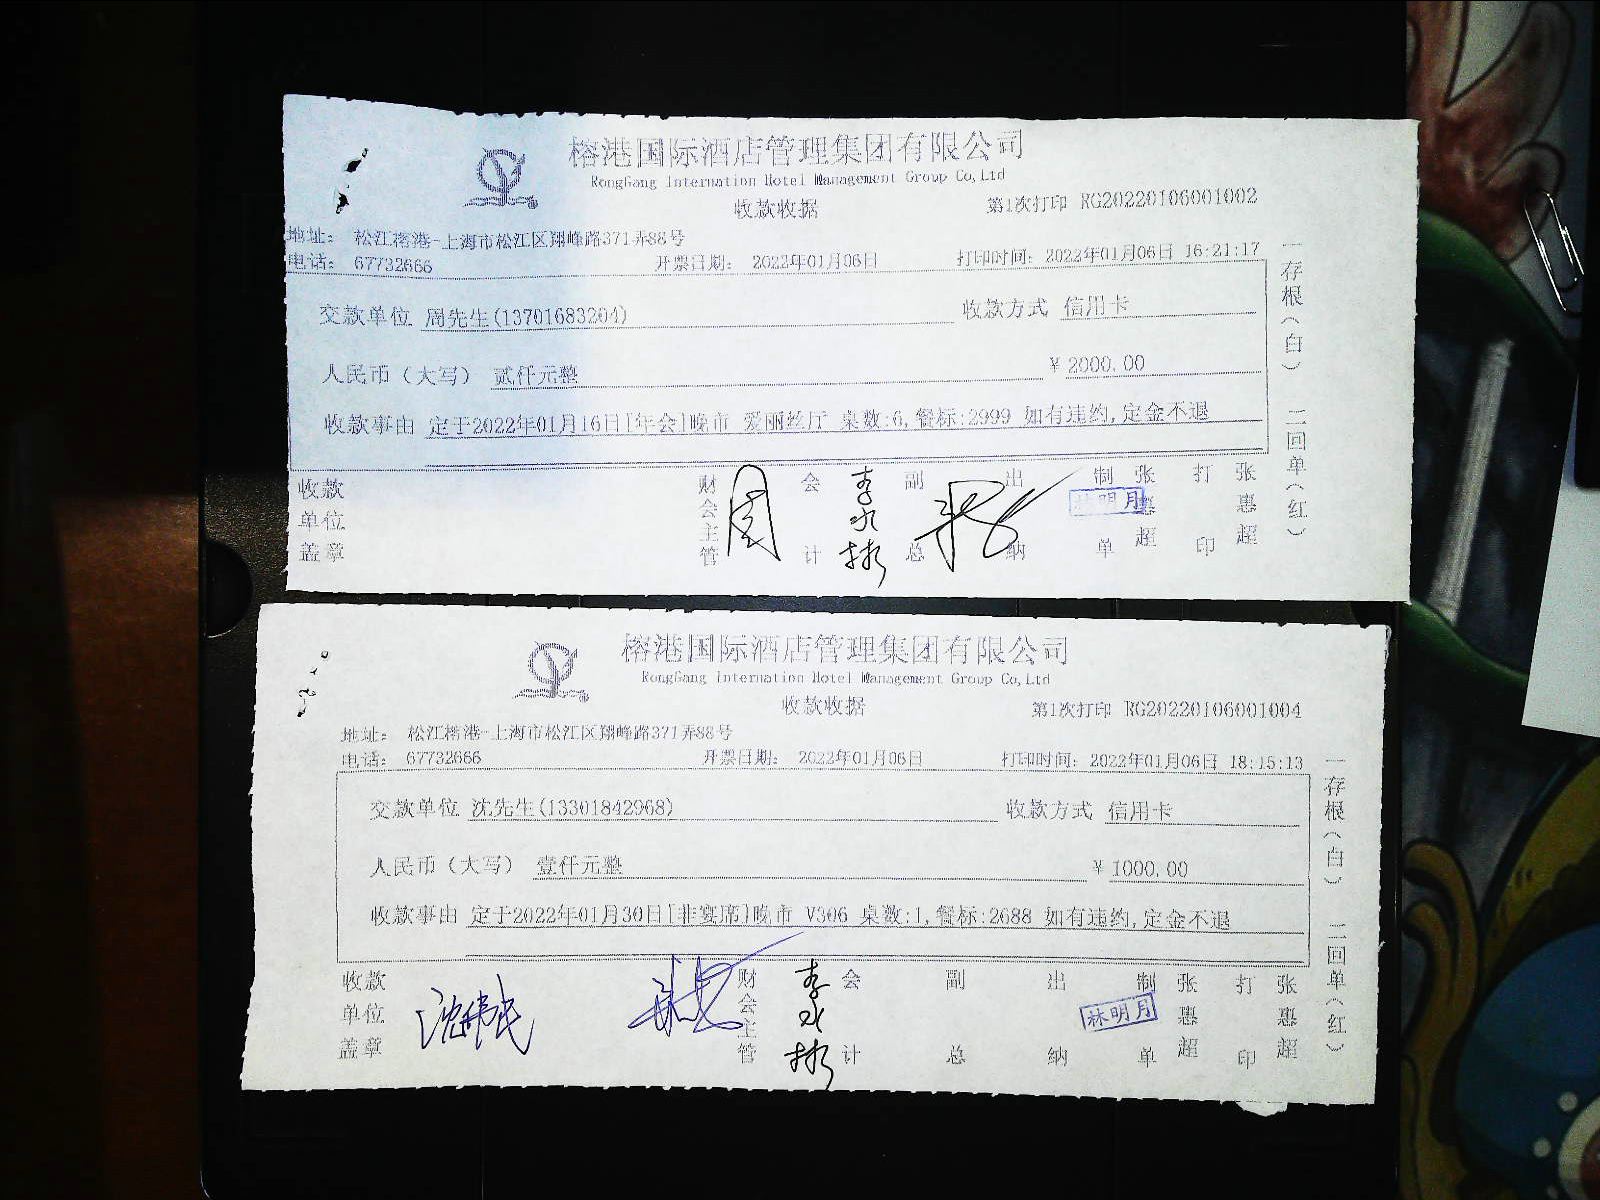 榕港国际酒店管理集团有限公司
RongGang Internation Hotel Management Group Co,Ltd
收款收据
第1次打印 RG20220106001002
地址： 松江榕港-上海市松江区翔峰路371弄88号
电话： 67732666 开票日期： 2022年01月06日 打印时间： 2022年01月06日 16:21:17
交款单位 周先生(13701683204) 收款方式 信用卡
人民币（大写） 贰仟元整 ￥2000.00
收款事由 定于2022年01月16日[年会]晚市 爱丽丝厅 桌数:6,餐标:2999 如有违约,定金不退
收款单位盖章 财会主管 周 会计 李水彬 副总 出纳 林明月 制单 张惠超 打印 张惠超
一存根（白） 二回单（红）
榕港国际酒店管理集团有限公司
RongGang Internation Hotel Management Group Co,Ltd
收款收据
第1次打印 RG20220106001004
地址： 松江榕港-上海市松江区翔峰路371弄88号
电话： 67732666 开票日期： 2022年01月06日 打印时间： 2022年01月06日 18:15:13
交款单位 沈先生(13301842968) 收款方式 信用卡
人民币（大写） 壹仟元整 ￥1000.00
收款事由 定于2022年01月30日[非宴席]晚市 V306 桌数:1,餐标:2688 如有违约,定金不退
收款单位盖章 财会主管 李水彬 会计 副总 出纳 林明月 制单 张惠超 打印 张惠超
一存根（白） 二回单（红）